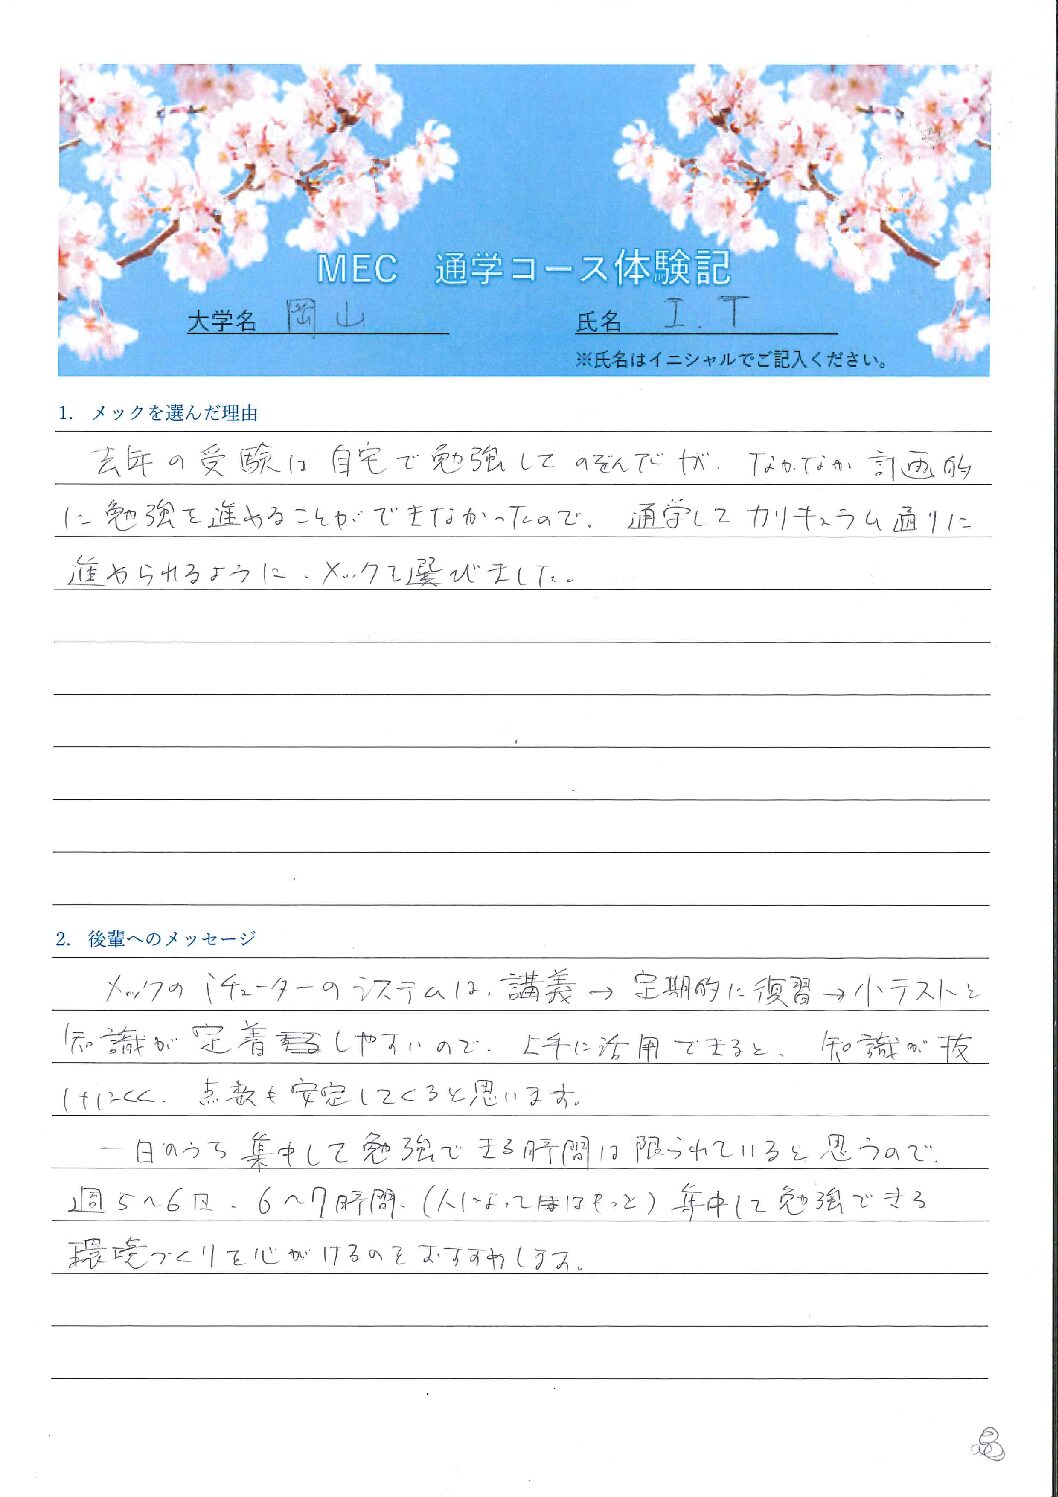 MEC 通学コース体験記
大学名 岡山 氏名 I.T
※氏名はイニシャルでご記入ください。
1. メックを選んだ理由
去年の受験は自宅で勉強してのぞんだが、なかなか計画的
に勉強を進めることができなかったので、通学してカリキュラム通りに
進められるように、メックを選びました。
2. 後輩へのメッセージ
メックのiチューターのシステムは、講義→定期的に復習→小テストと
知識が定着しやすいので、上手に活用できると、知識が抜
けにくく、点数も安定してくると思います。
一日のうち集中して勉強できる時間は限られていると思うので、
週5〜6日、6〜7時間、(人によってはもっと)集中して勉強できる
環境づくりを心がけるのをおすすめします。